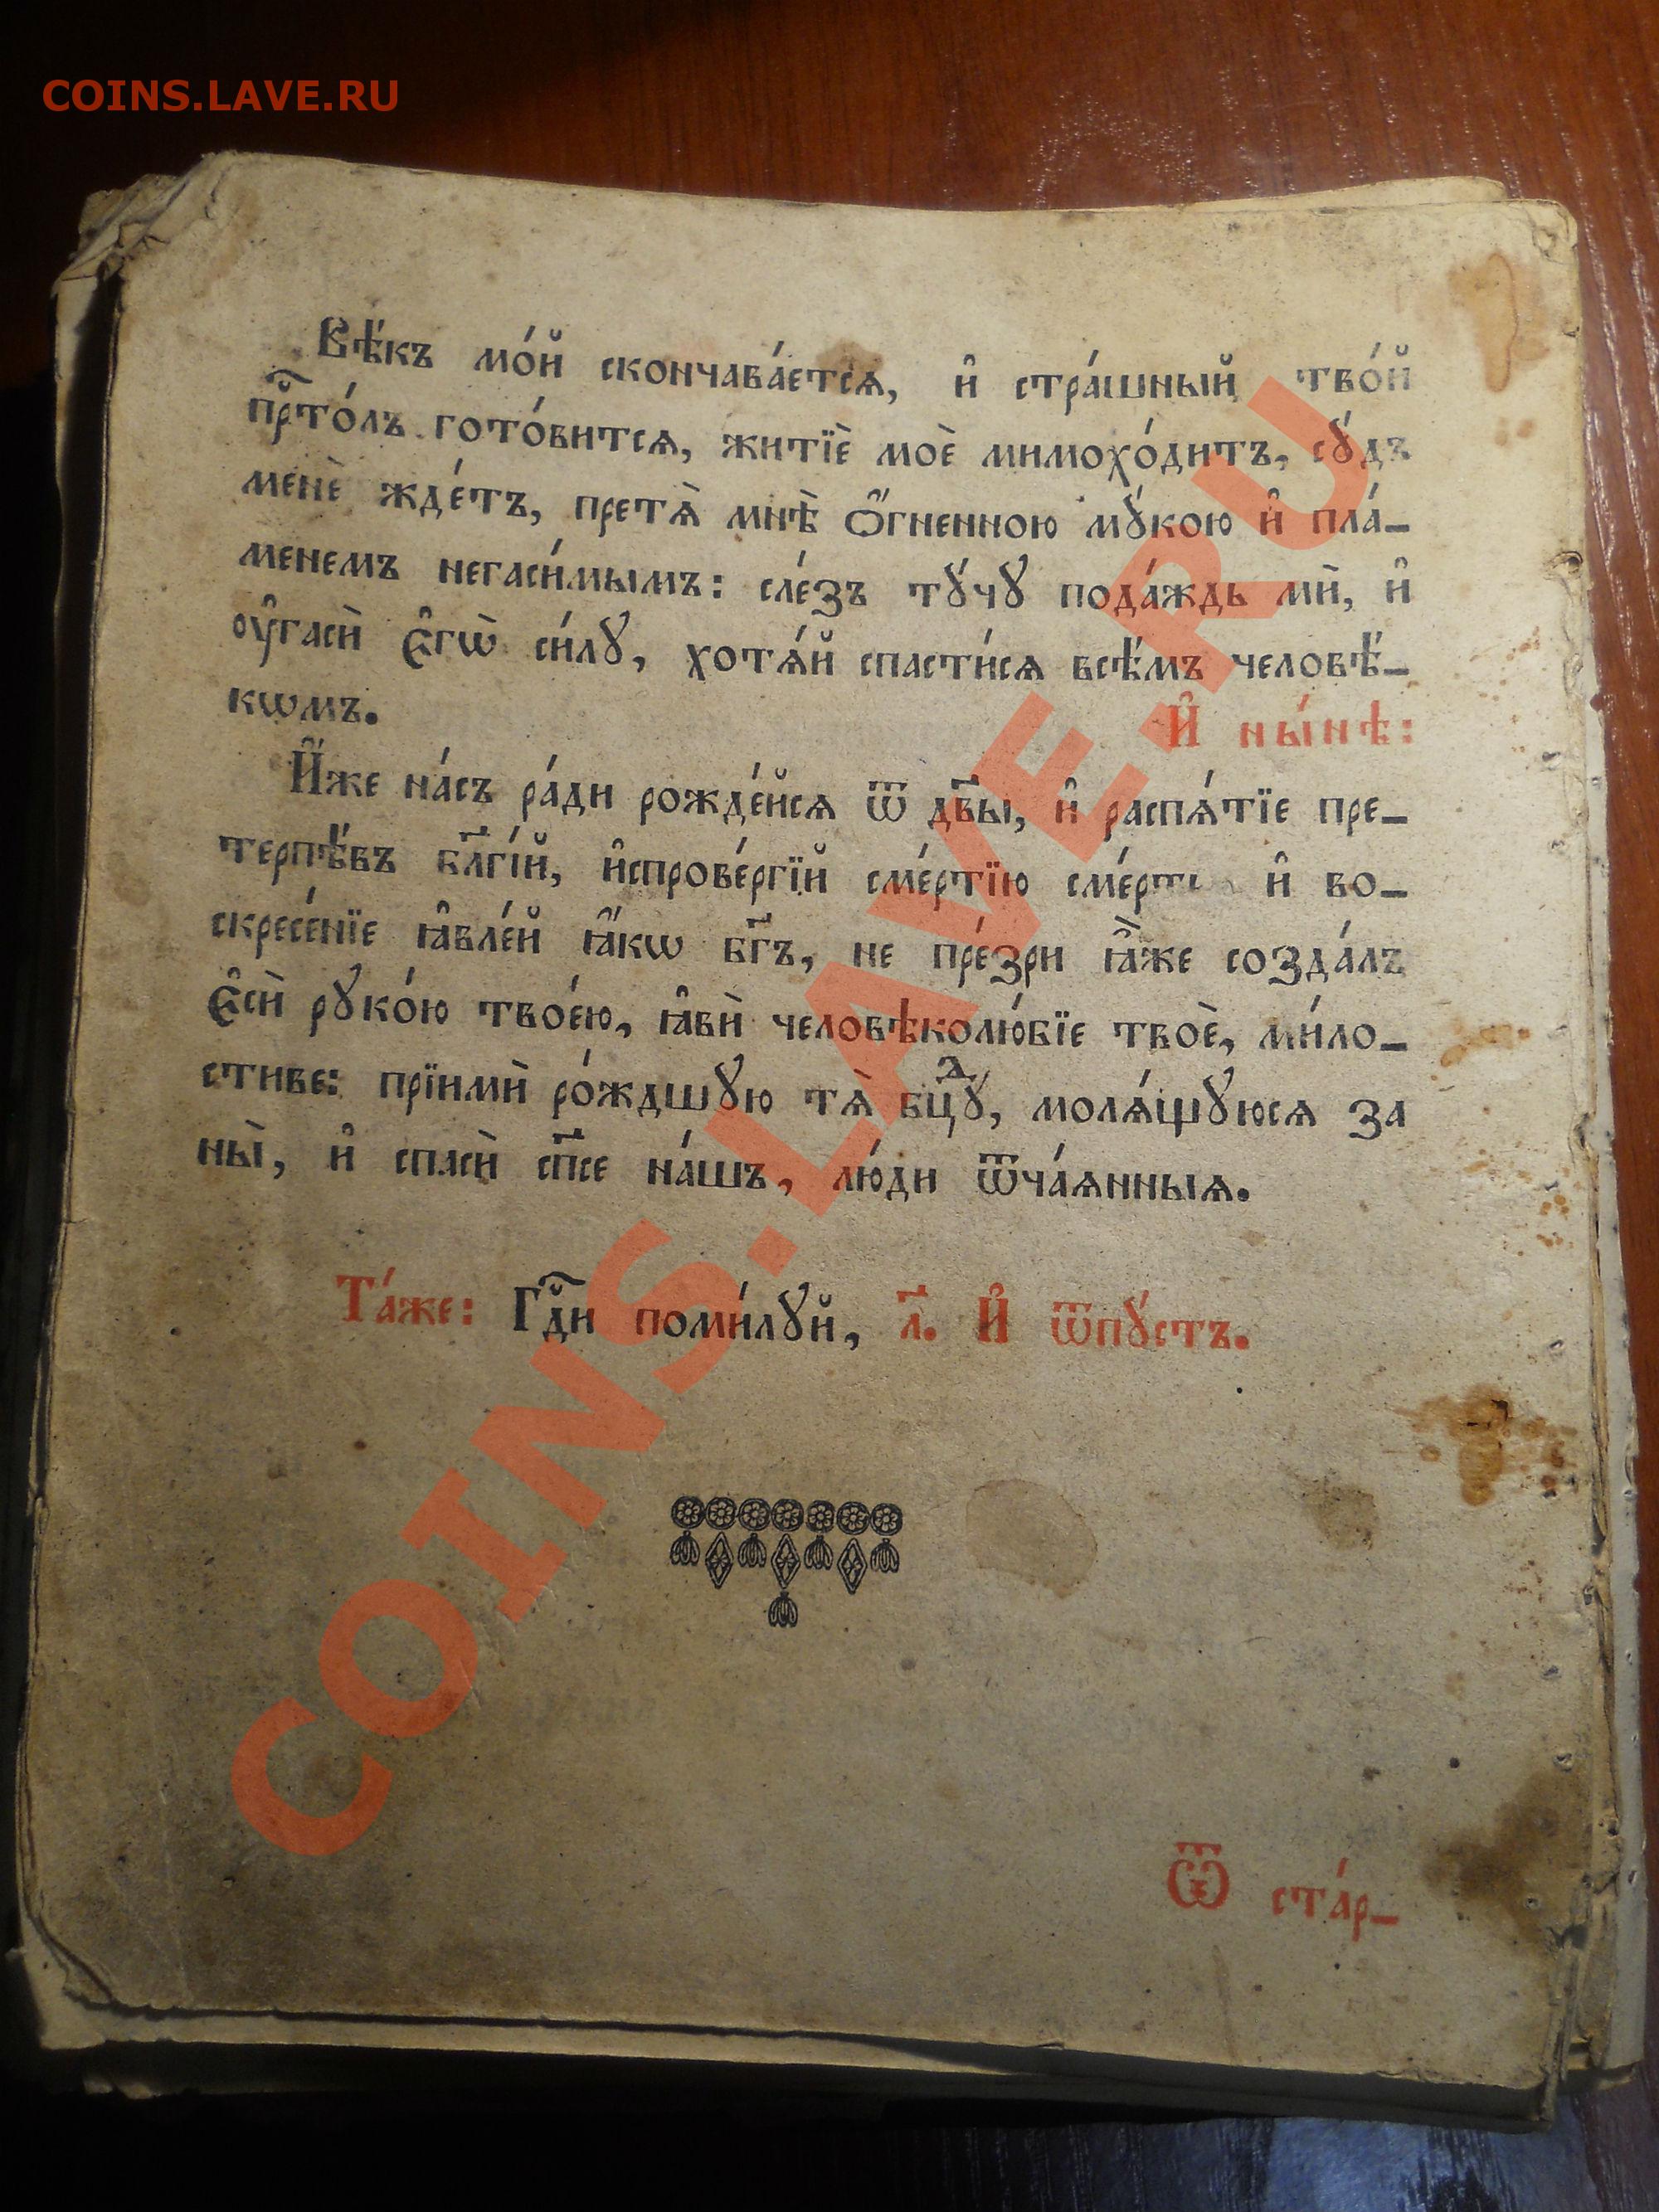 COINS.LAVE.RU
Вѣ́къ мо́й скончава́етсѧ, и҆ стра́шный тво́й
прⷭ҇то́лъ гото́витсѧ, житїѐ моѐ мимохо́дитъ, сꙋ́дъ
менѐ жде́тъ, претѧ̀ мнѣ̀ ѻ҆́гненною мꙋ́кою и҆ пла́-
менемъ негаси́мымъ: сле́зъ тꙋ́чꙋ пода́ждь мѝ, и҆
ᲂу҆гасѝ є҆гѡ̀ си́лꙋ, хотѧ́й спасти́сѧ всѣ́мъ человѣ́-
кѡмъ.
И҆ ны́нѣ:
И҆́же на́съ ра́ди рожде́йсѧ ѿ дв҃ы, и҆ распѧ́тїе пре-
терпѣ́въ бл҃гі́й, и҆спрове́ргїй сме́ртїю сме́рть и҆ во-
скресе́нїе ꙗ҆вле́й ꙗ҆́кѡ бг҃ъ, не пре́зри ꙗ҆̀же созда́лъ
є҆сѝ рꙋко́ю твое́ю, ꙗ҆вѝ человѣколю́бїе твоѐ, ми́ло-
стиве: прїимѝ ро́ждшꙋю тѧ̀ бцⷣꙋ, молѧ́щꙋюсѧ за
ны̀, и҆ спасѝ сп҃се на́шъ, лю́ди ѿча́ѧнныѧ.
Та́же: Гдⷭ҇и поми́лꙋй, л҃. И҆ ѿпꙋ́стъ.
Ѿ ста́р-
COINS.LAVE.RU